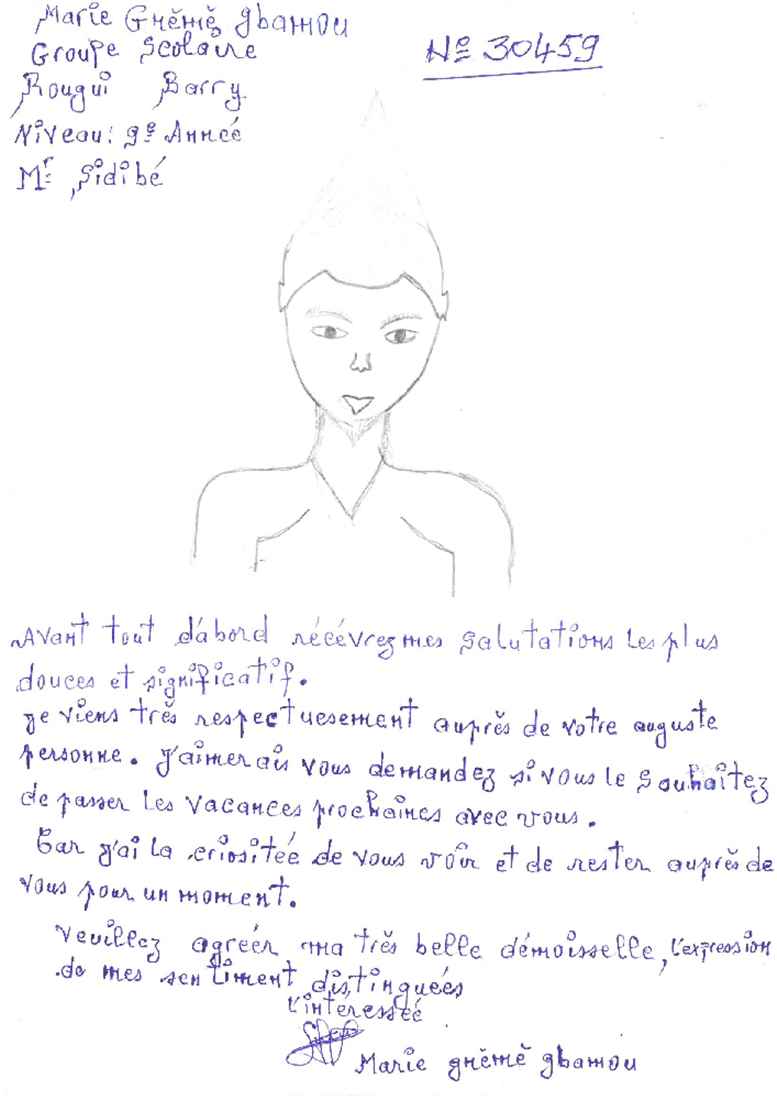 Marie Gnĕmĕ gbamou
Groupe Scolaire
Rougui Barry
Niveau: 9e Anneé
Mr Sidibé
No 30459
Avant tout d'abord récévrez mes salutations les plus
douces et significatif.
je viens très respectuesement auprès de votre auguste
personne. J'aimerais vous demandez si vous le souhaitez
de passer les vacances prochaines avec vous.
Car j'ai la criositée de vous voir et de rester auprès de
vous pour un moment.
Veuillez agréer ma très belle démoisselle, l'expression
de mes sentiment distinguées
L'intéressée
Marie gnĕmĕ gbamou